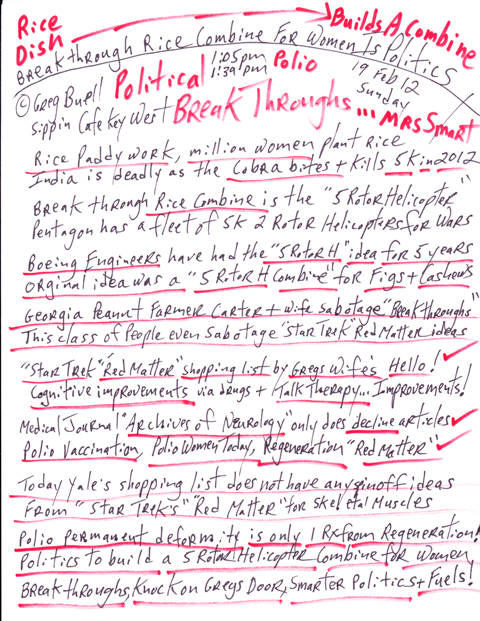 Rice Dish → Builds A Combine
BreakThrough Rice Combine For Women Is Politics
Political 1:05pm 1:39pm Polio 19 Feb 12 Sunday
© Greg Buell
Sippin Cafe Key West BreakThroughs... MRS Smart
Rice Paddy work, million women plant Rice
India is deadly as the Cobra bites + Kills 5K in 2012
Break through Rice Combine is the "5 Rotor Helicopter"
Pentagon has a fleet of 5K 2 Rotor Helicopters for Wars
Boeing Engineers have had the "5 Rotor H" idea for 5 years
Orginal idea was a "5 Rotor H Combine" for Figs + Cashews
Georgia Peanut Farmer Carter + wife Sabotage "Breakthroughs"
This class of People even Sabotage "STAR Trek" Red Matter ideas
"STAR Trek" "Red Matter" shopping list by Gregs Wife's Hello!
Cognitive improvements via drugs + Talk Therapy... Improvements!
Medical Journal "Archives of Neurology" only does decline articles
Polio Vaccination, Polio Women Today, Regeneration "Red Matter"
Today Yale's shopping list does not have any spinoff ideas
From "STAR Trek's" "Red Matter" for Skeletal Muscles
Polio Permanent deformity is only 1 Rx from Regeneration!
Politics to build a 5 Rotor Helicopter Combine for women
Breakthroughs, Knock on Gregs Door, Smarter Politics + Fuels!